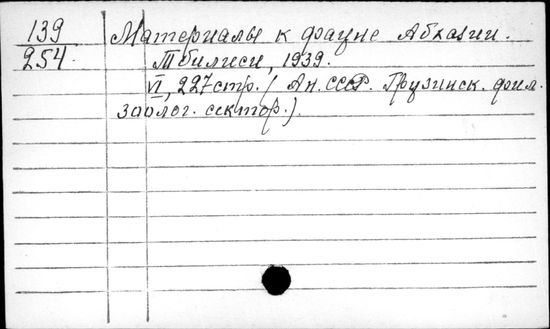 139 Материалы к фауне Абхазии.
254. Тбилиси, 1939.
VI, 227стр. / Ан. СССР. Грузинск. фил.
зоолог. сектор.).